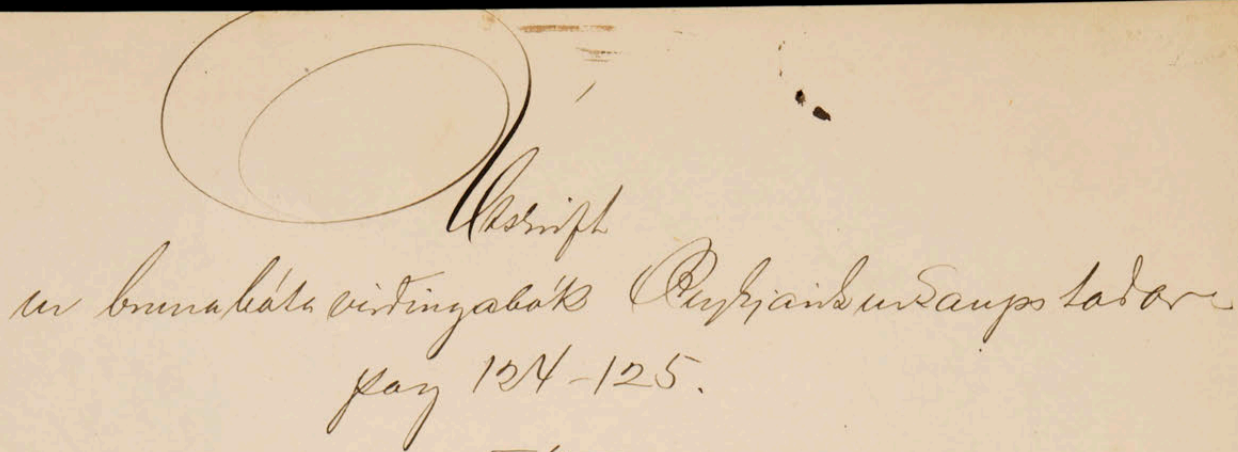 Útskrift
úr brunabótavirðingabók Reykjavíkurkaupstaðar
pag 124-125.